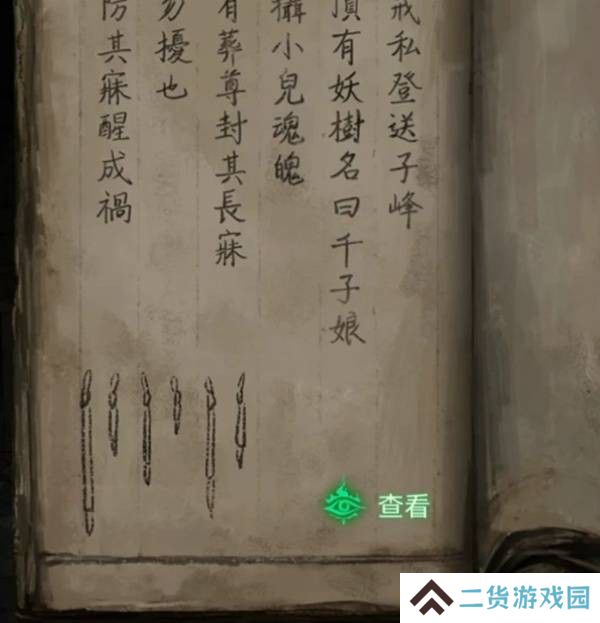 戒私登送子峰
頂有妖樹名曰千子娘
攝小兒魂魄
有葬尊封其長寐
勿擾也
防其寐醒成禍
查看
二货游戏园